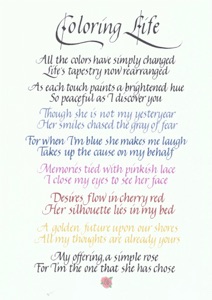 Coloring Life
All the colors have simply changed
Life's tapestry now rearranged
As each touch paints a brightened hue
So peaceful as I discover you
Though she is not my yesteryear
Her smiles chased the gray of fear
For when I'm blue she makes me laugh
Takes up the cause on my behalf
Memories tied with pinkish lace
I close my eyes to see her face
Desires flow in cherry red
Her silhouette lies in my bed
A golden future upon our shores
All my thoughts are already yours
My offering, a simple rose
For I'm the one that she has chose